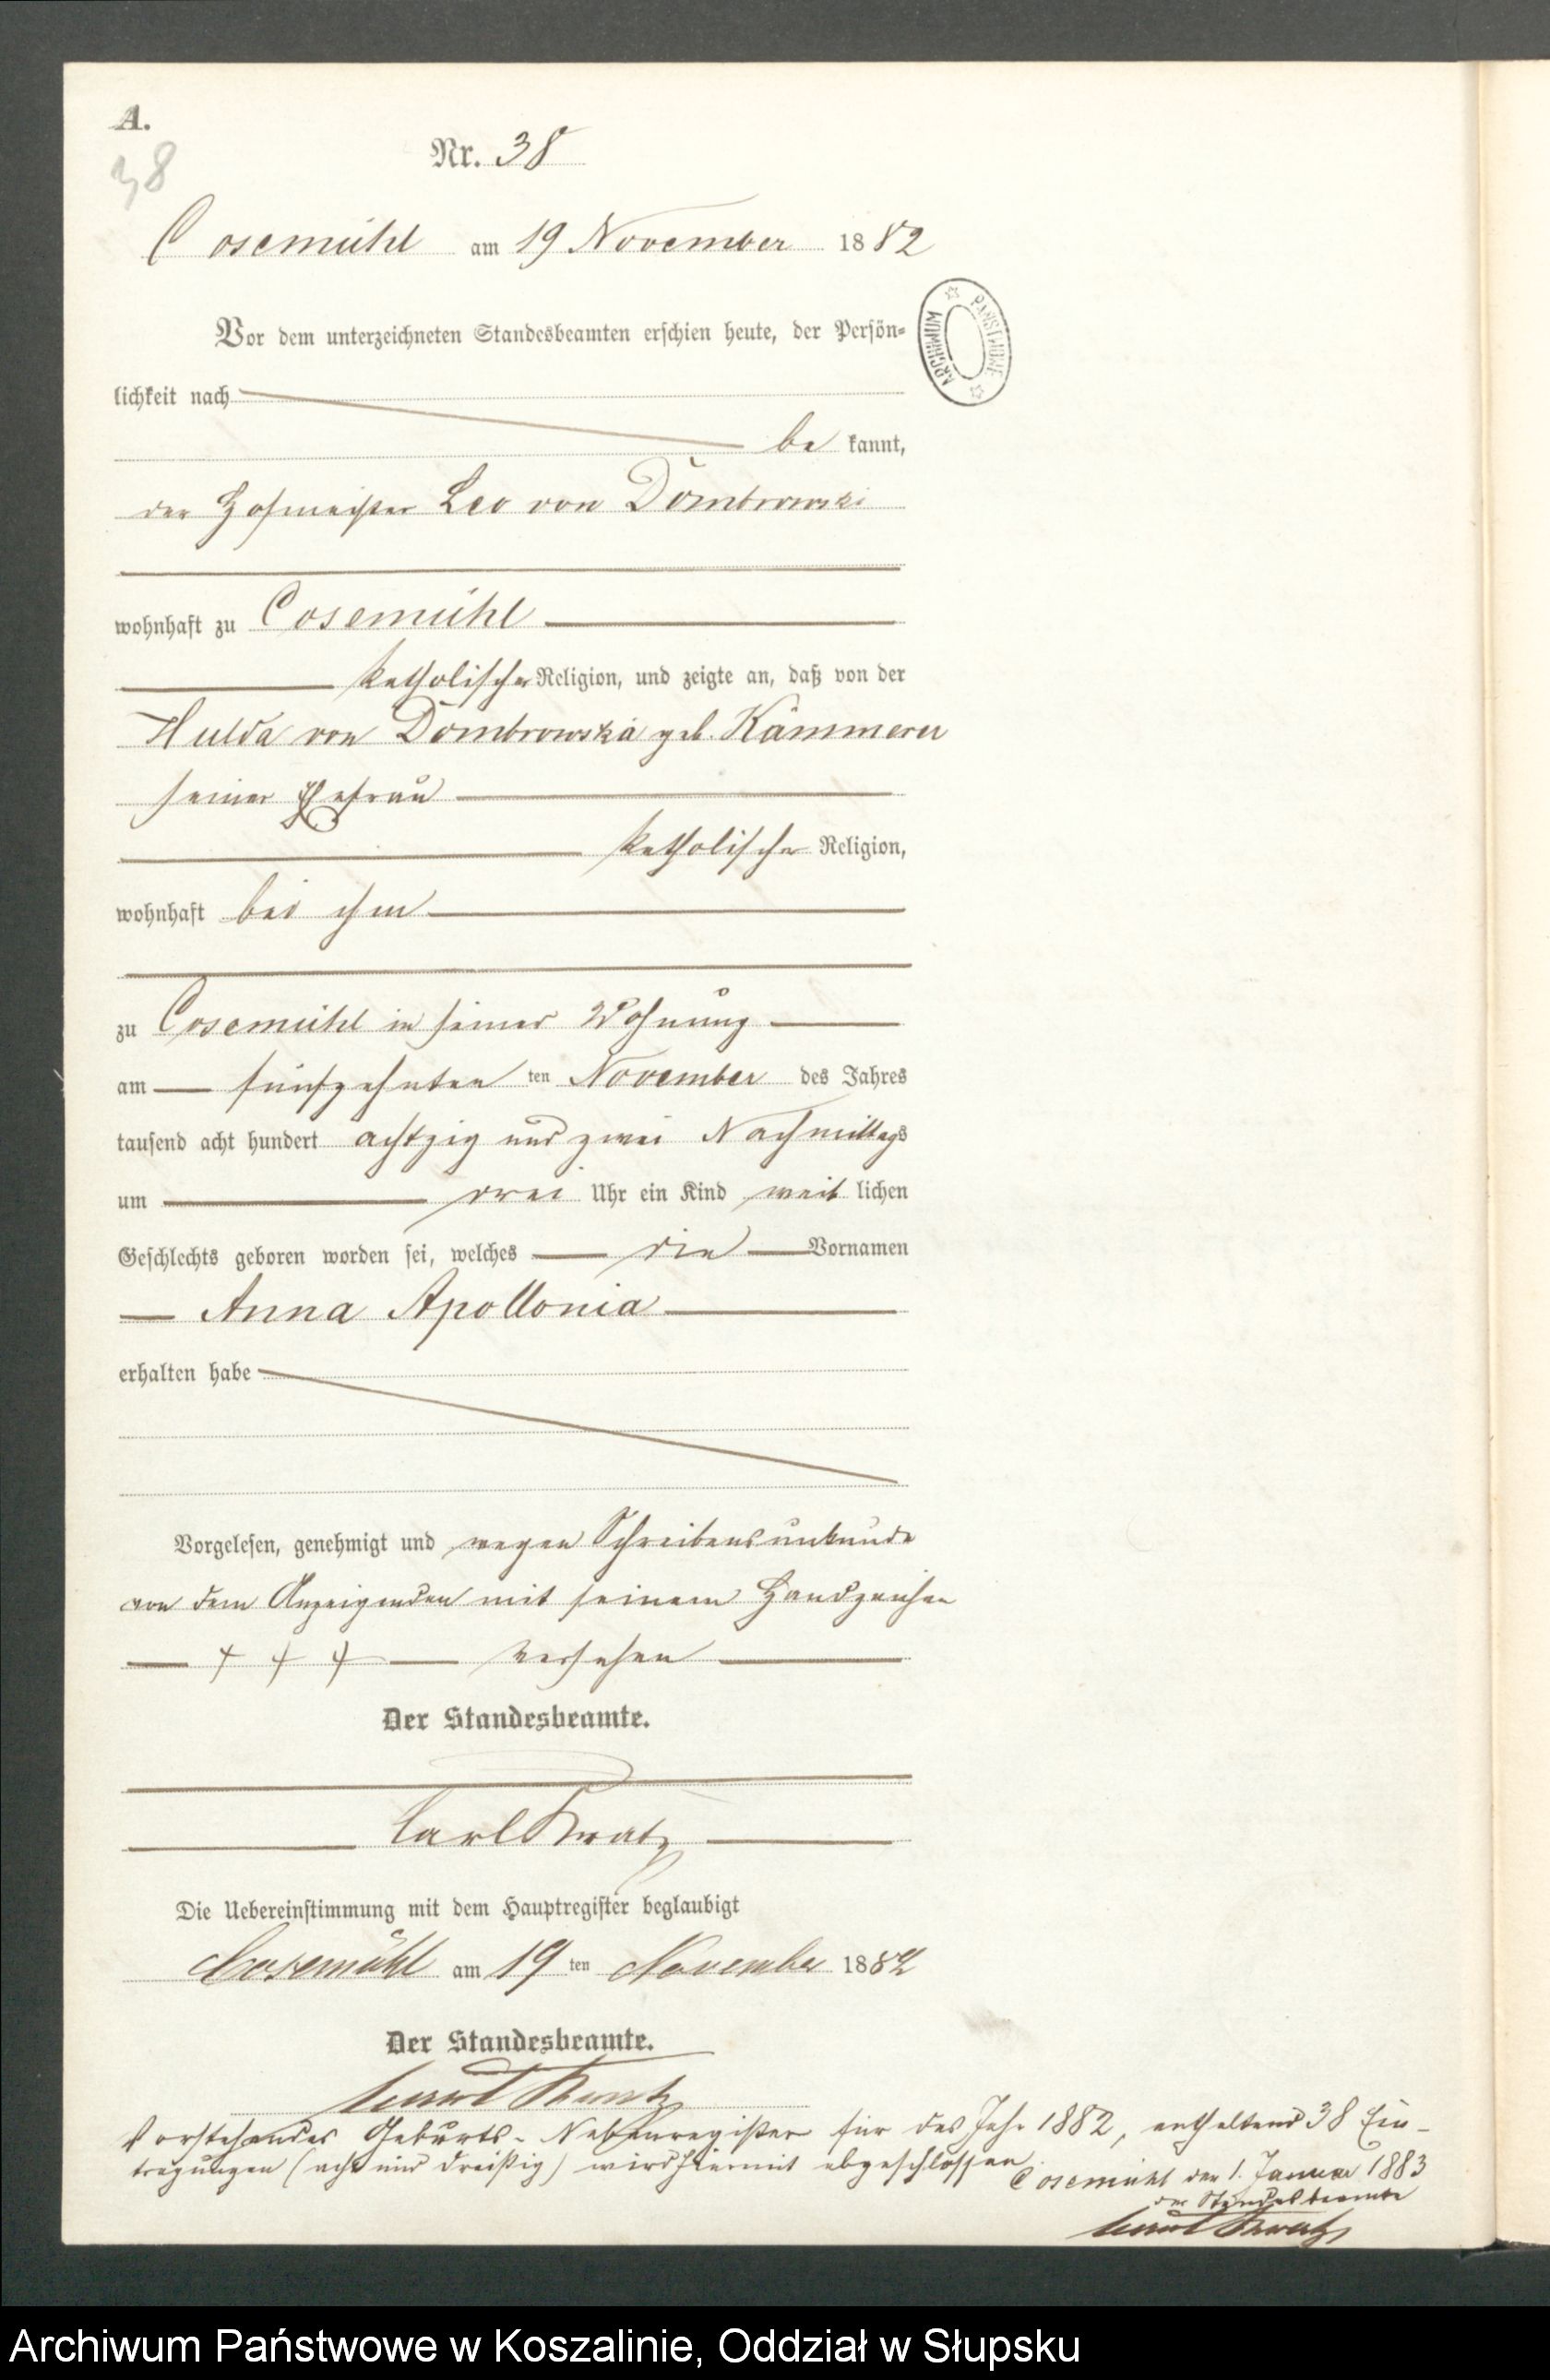 A.
38
Nr. 38
Cosemühl am 19 November 1882
Vor dem unterzeichneten Standesbeamten erschien heute, der Persön-
lichkeit nach
be kannt,
der Hofmeister Leo von Dombrowski
wohnhaft zu Cosemühl
katholischer Religion, und zeigte an, daß von der
Hulda von Dombrowska geb. Kämmerer
seiner Ehefrau
katholischer Religion,
wohnhaft bei ihm
zu Cosemühl in seiner Wohnung
am fünfzehnten ten November des Jahres
tausend acht hundert achtzig und zwei Nachmittags
um drei Uhr ein Kind weib lichen
Geschlechts geboren worden sei, welches die Vornamen
Anna Apollonia
erhalten habe
Vorgelesen, genehmigt und wegen Schreibensunkunde
von dem Anzeigenden mit seinem Handzeichen
+ + + versehen
Der Standesbeamte.
Carl Kratz
Die Uebereinstimmung mit dem Hauptregister beglaubigt
Cosemühl am 19 ten November 1882
Der Standesbeamte.
Carl Kratz
Vorstehendes Geburts-Nebenregister für das Jahr 1882, enthaltend 38 Ein-
tragungen (acht und dreißig) wird hiermit abgeschlossen.
Cosemühl den 1. Januar 1883
der Standesbeamte
Carl Kratz
ARCHIWUM PAŃSTWOWE
Archiwum Państwowe w Koszalinie, Oddział w Słupsku